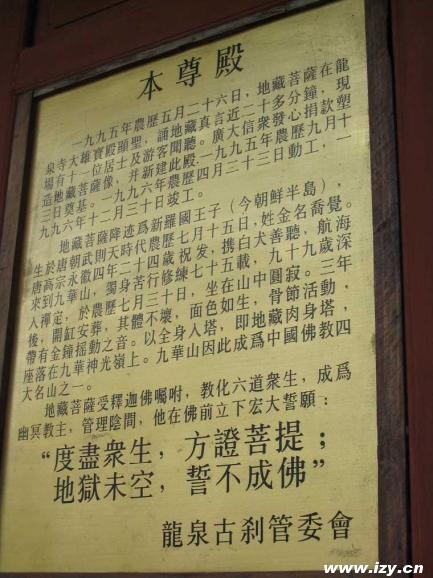 本尊殿
一九九五年農歷五月二十六日，地藏菩薩在龍
泉寺大雄寶殿顯聖，誦地藏真言近二十多分鐘，現
場有十一位居士及游客聞聽。廣大信衆發心捐款塑
造地藏菩薩像，并新建此殿.一九九五年農歷九月十
三日奠基。一九九六年農歷四月三十三日動工，一
九九六年十二月三十日竣工。
地藏菩薩降迹爲新羅國王子（今朝鮮半島），
生於唐朝武則天時代農歷七月十五日,姓金名喬覺。
唐高宗永徽四年二十四歲祝发，携白犬善聽，航海
來到九華山，獨身苦行修練七十五載，九十九歲深
入禪定，於農歷七月三十日，坐在山中圓寂。三年
後，開缸安葬，其體不壞，面色如生，骨節活動，
帶有金鐘摇動之音。以全身入塔，即地藏肉身塔，
座落在九華神光嶺上。九華山因此成爲中國佛教四
大名山之一。
地藏菩薩受釋迦佛囑咐，教化六道衆生，成爲
幽冥教主，管理陰間，他在佛前立下宏大誓願：
“度盡衆生，方證菩提；
地獄未空，誓不成佛”
龍泉古刹管委會
www.izy.cn